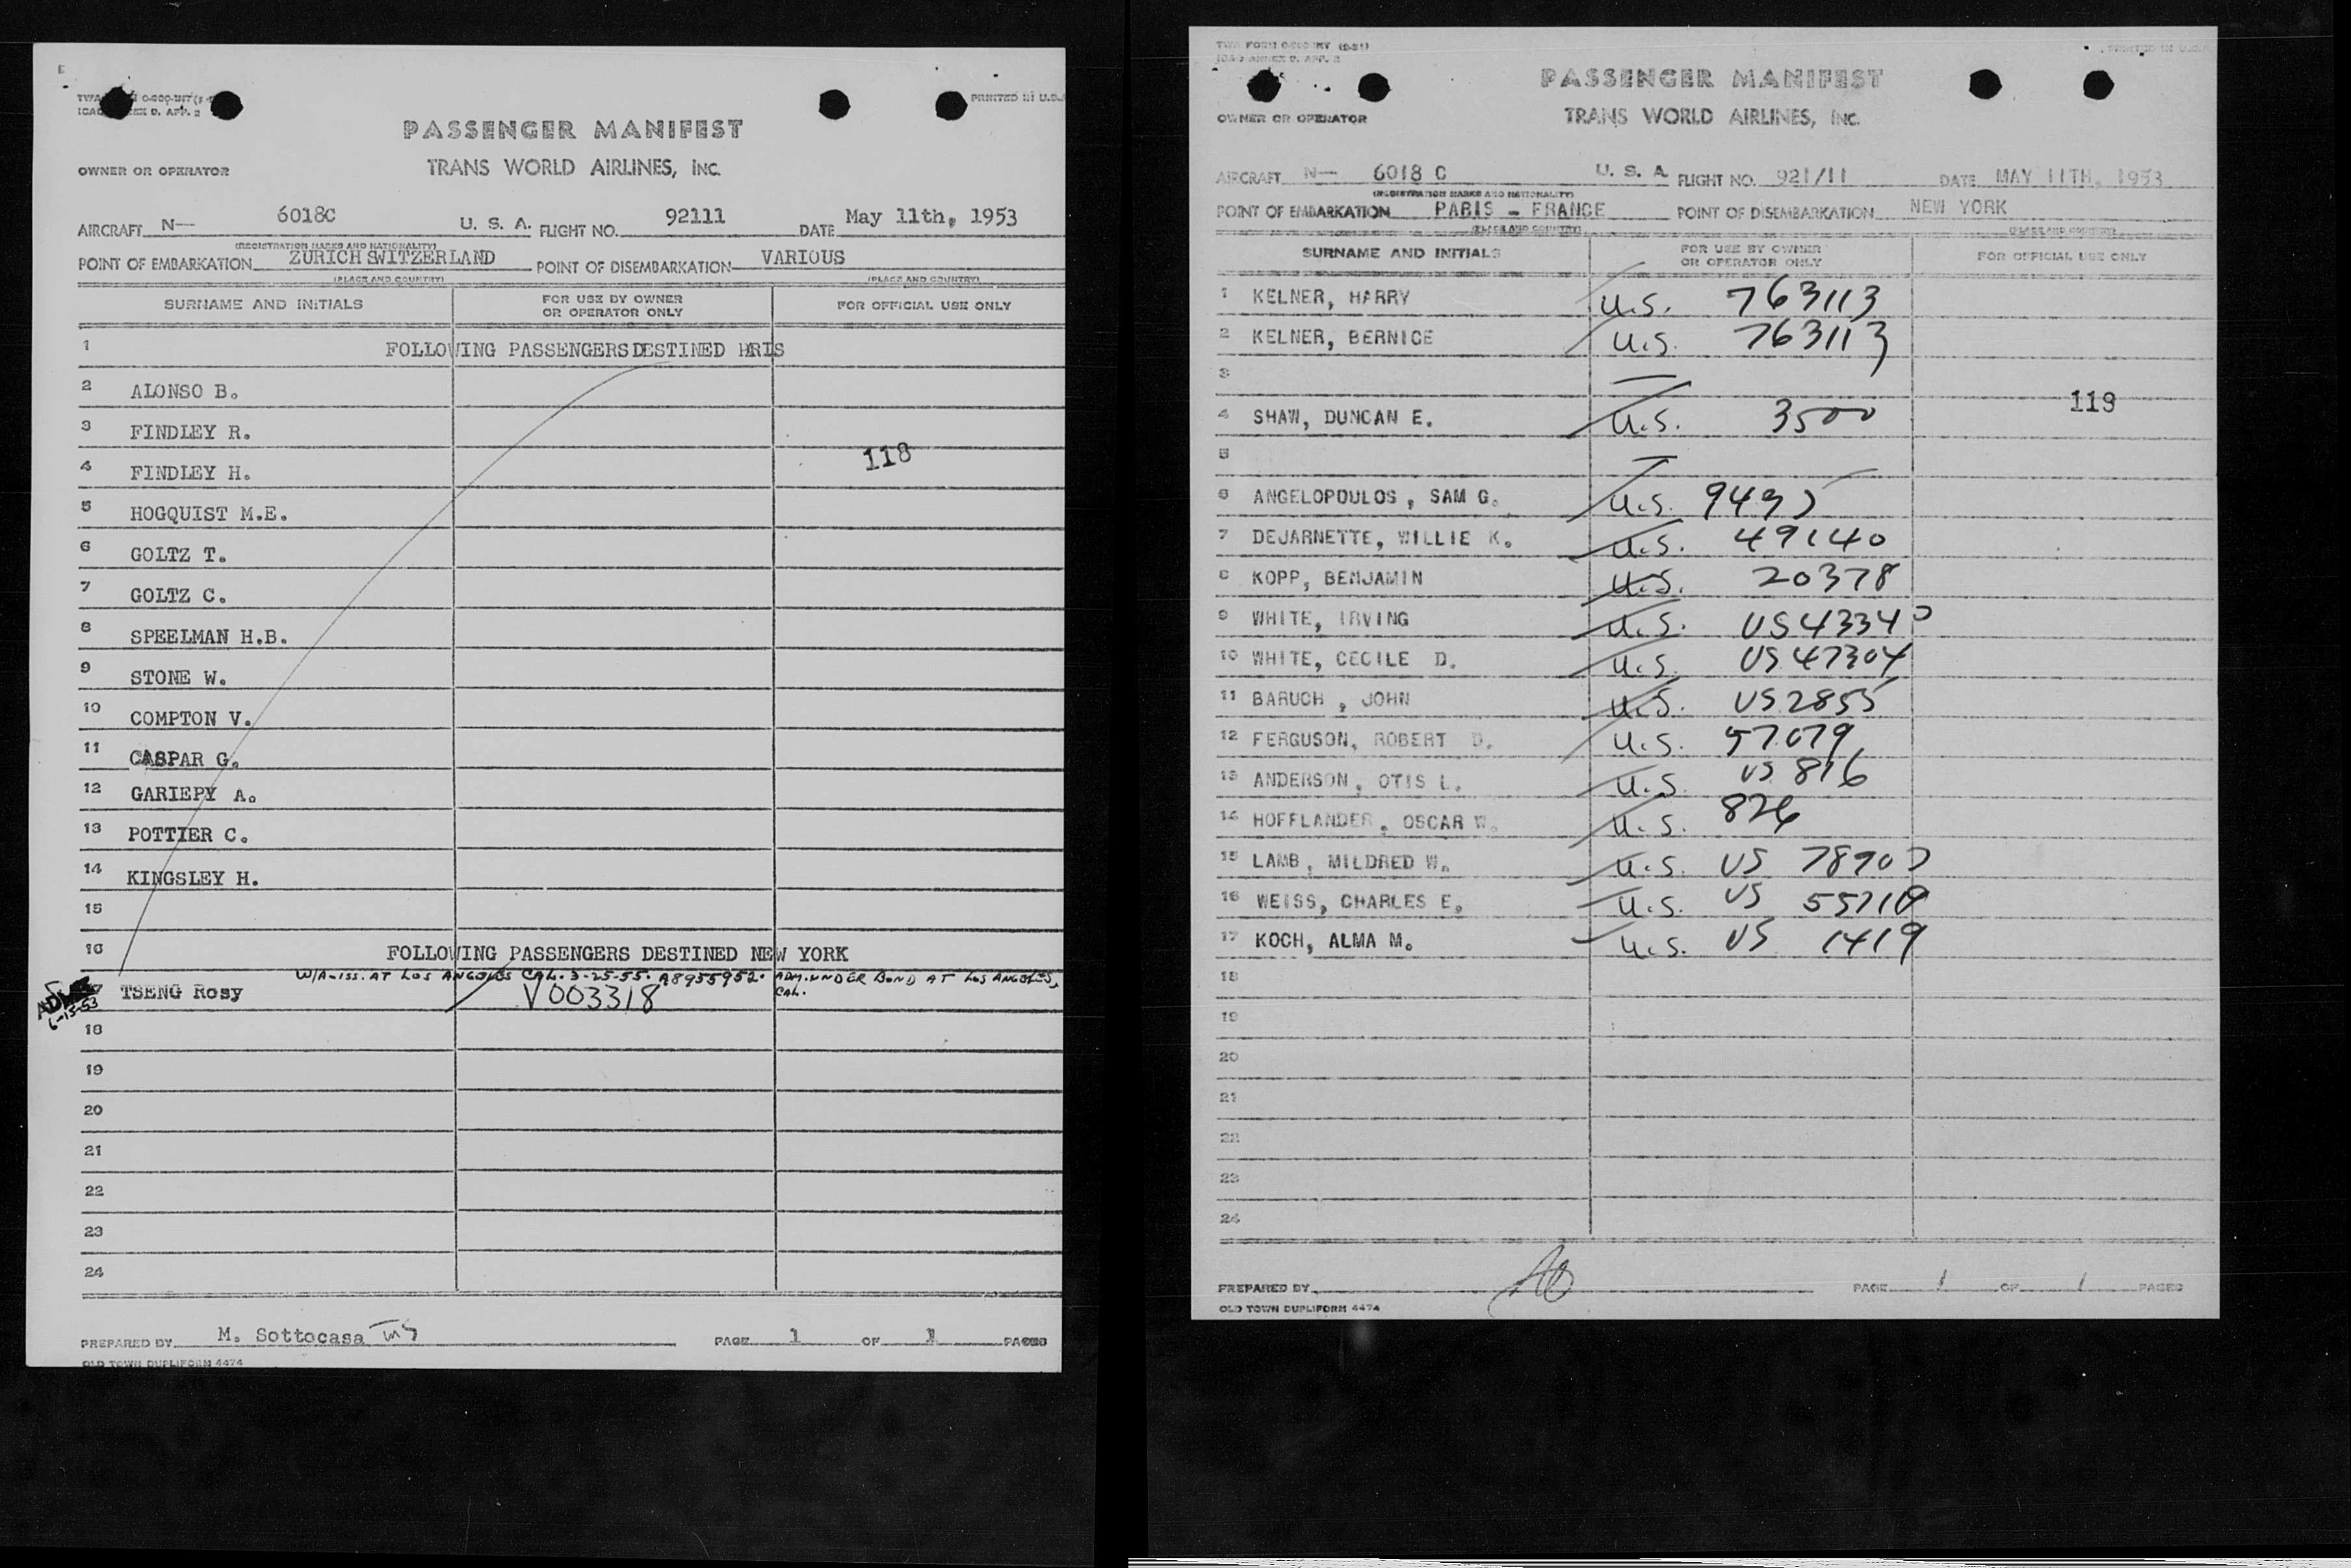 PASSENGER MANIFEST
TRANS WORLD AIRLINES, INC.
PRINTED IN U.S.A
OWNER OR OPERATOR
AIRCRAFT N— 6018C U. S. A. FLIGHT NO. 92111 DATE May 11th, 1953
(REGISTRATION MARKS AND NATIONALITY)
POINT OF EMBARKATION ZURICH SWITZERLAND POINT OF DISEMBARKATION VARIOUS
(PLACE AND COUNTRY) (PLACE AND COUNTRY)
SURNAME AND INITIALS FOR USE BY OWNER OR OPERATOR ONLY FOR OFFICIAL USE ONLY
1 FOLLOWING PASSENGERS DESTINED PARIS
2 ALONSO B.
3 FINDLEY R.
118
4 FINDLEY H.
5 HOGQUIST M.E.
6 GOLTZ T.
7 GOLTZ C.
8 SPEELMAN H.B.
9 STONE W.
10 COMPTON V.
11 CASPAR G.
12 GARIEPY A.
13 POTTIER C.
14 KINGSLEY H.
15
16 FOLLOWING PASSENGERS DESTINED NEW YORK
W/A-ISS. AT LOS ANGELES CAL. 3-25-55. A8955952. ADM. UNDER BOND AT LOS ANGELES, CAL.
TSENG Rosy V003318
6-13-53
18
19
20
21
22
23
24
PREPARED BY M. Sottocasa PAGE 1 OF 1 PAGES
OLD TOWN DUPLIFORM 4474
TWA FORM
ICAO ANNEX 9. APP. 2
PRINTED IN U.S.A
PASSENGER MANIFEST
TRANS WORLD AIRLINES, INC.
OWNER OR OPERATOR
AIRCRAFT N— 6018 C U. S. A. FLIGHT NO. 921/11 DATE MAY 11TH, 1953
(REGISTRATION MARKS AND NATIONALITY)
POINT OF EMBARKATION PARIS - FRANCE POINT OF DISEMBARKATION NEW YORK
(PLACE AND COUNTRY) (PLACE AND COUNTRY)
SURNAME AND INITIALS FOR USE BY OWNER OR OPERATOR ONLY FOR OFFICIAL USE ONLY
1 KELNER, HARRY U.S. 763113
2 KELNER, BERNICE U.S. 763113
3
119
4 SHAW, DUNCAN E. U.S. 3500
5
6 ANGELOPOULOS, SAM G. U.S. 9435
7 DEJARNETTE, WILLIE K. U.S. 49140
8 KOPP, BENJAMIN U.S. 20378
9 WHITE, IRVING U.S. US 43340
10 WHITE, CECILE D. U.S. US 47304
11 BARUCH, JOHN U.S. US 2855
12 FERGUSON, ROBERT D. U.S. 57079
13 ANDERSON, OTIS L. U.S. US 816
14 HOFFLANDER, OSCAR W. U.S. 826
15 LAMB, MILDRED W. U.S. US
16 WEISS, CHARLES E. U.S. US
17 KOCH, ALMA M. U.S. US 1419
18
19
20
21
22
23
24
PREPARED BY PAGE 1 OF 1 PAGES
OLD TOWN DUPLIFORM 4474